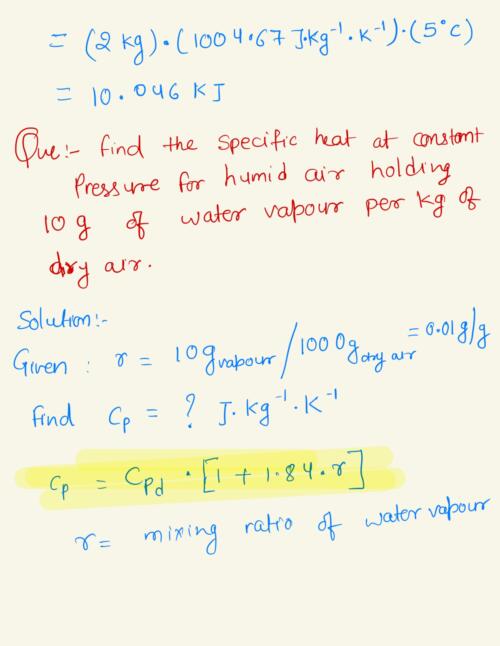 = (2 kg)·(1004.67 J·kg⁻¹·K⁻¹)·(5°C)
= 10.046 KJ
Que:- find the specific heat at constant
Pressure for humid air holding
10 g of water vapour per kg of
dry air.
Solution:-
Given : r = 10 g vapour / 1000 g dry air = 0.01 g/g
find Cp = ? J·kg⁻¹·K⁻¹
Cp = Cpd · [1 + 1.84·r]
r = mixing ratio of water vapour